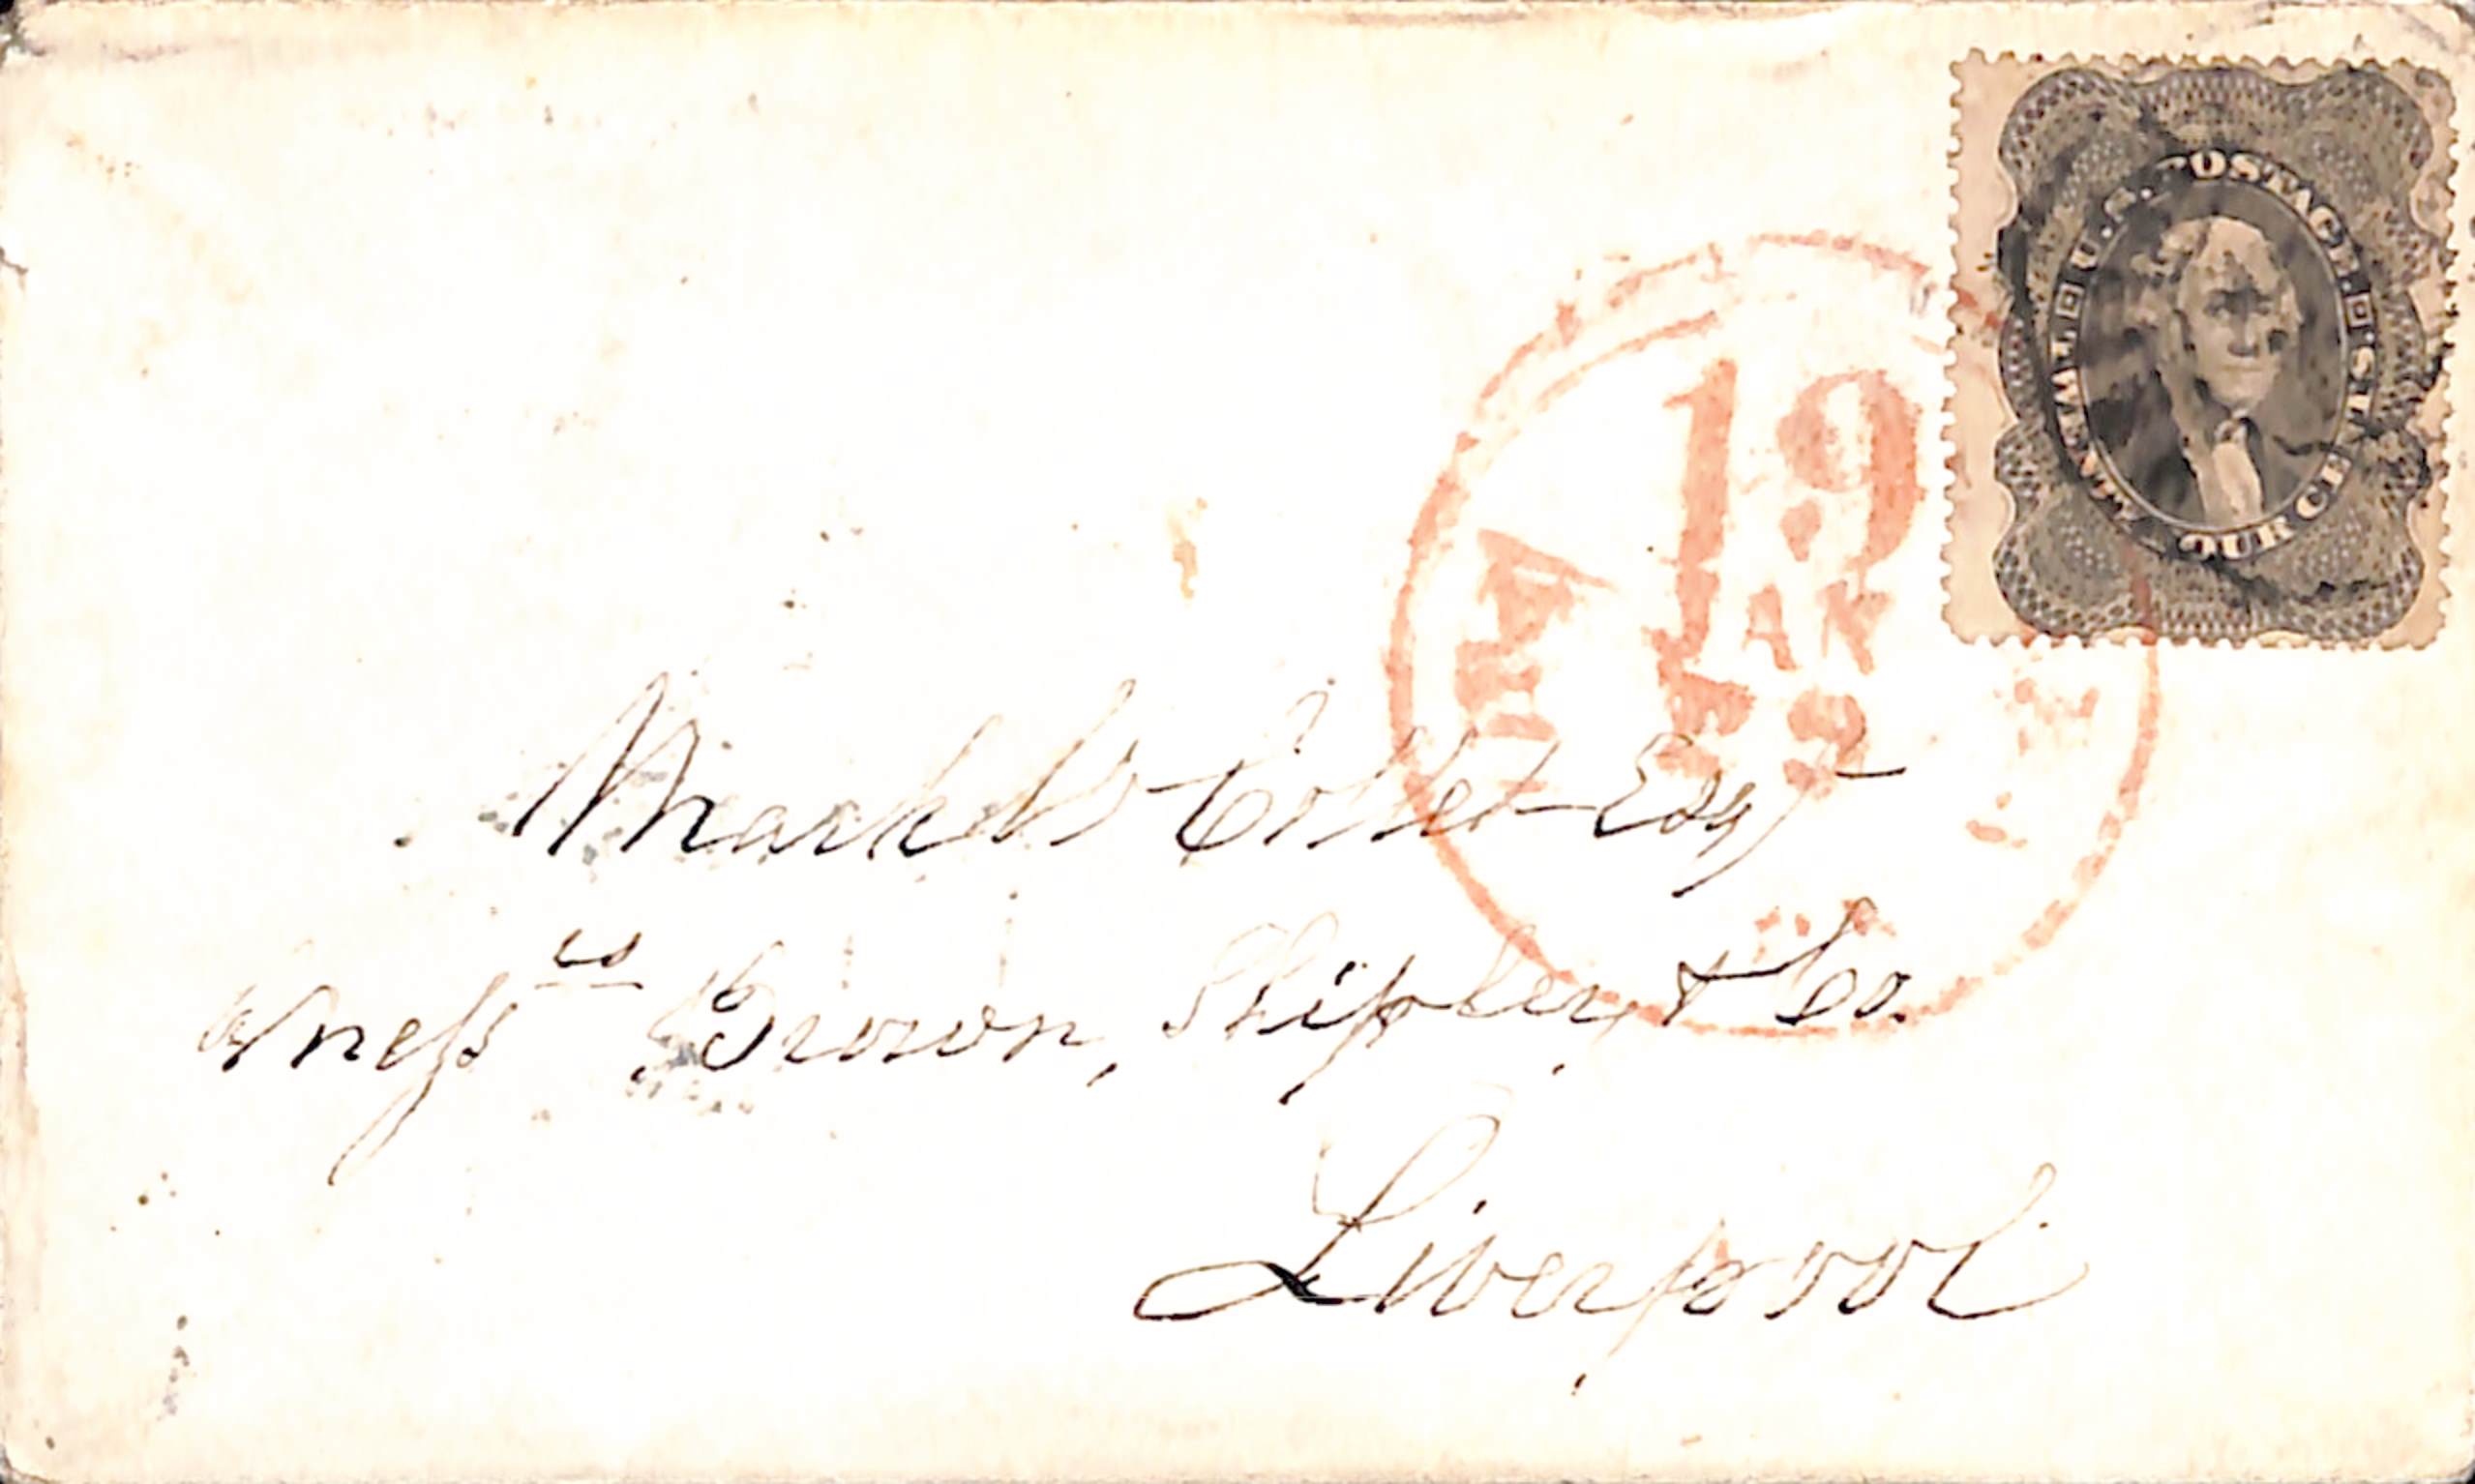 U.S. POSTAGE.
TWENTY FOUR CENTS.
19
JAN
Mark W Collet Esqr
Mess rs Brown, Shipley, & Co.
Liverpool